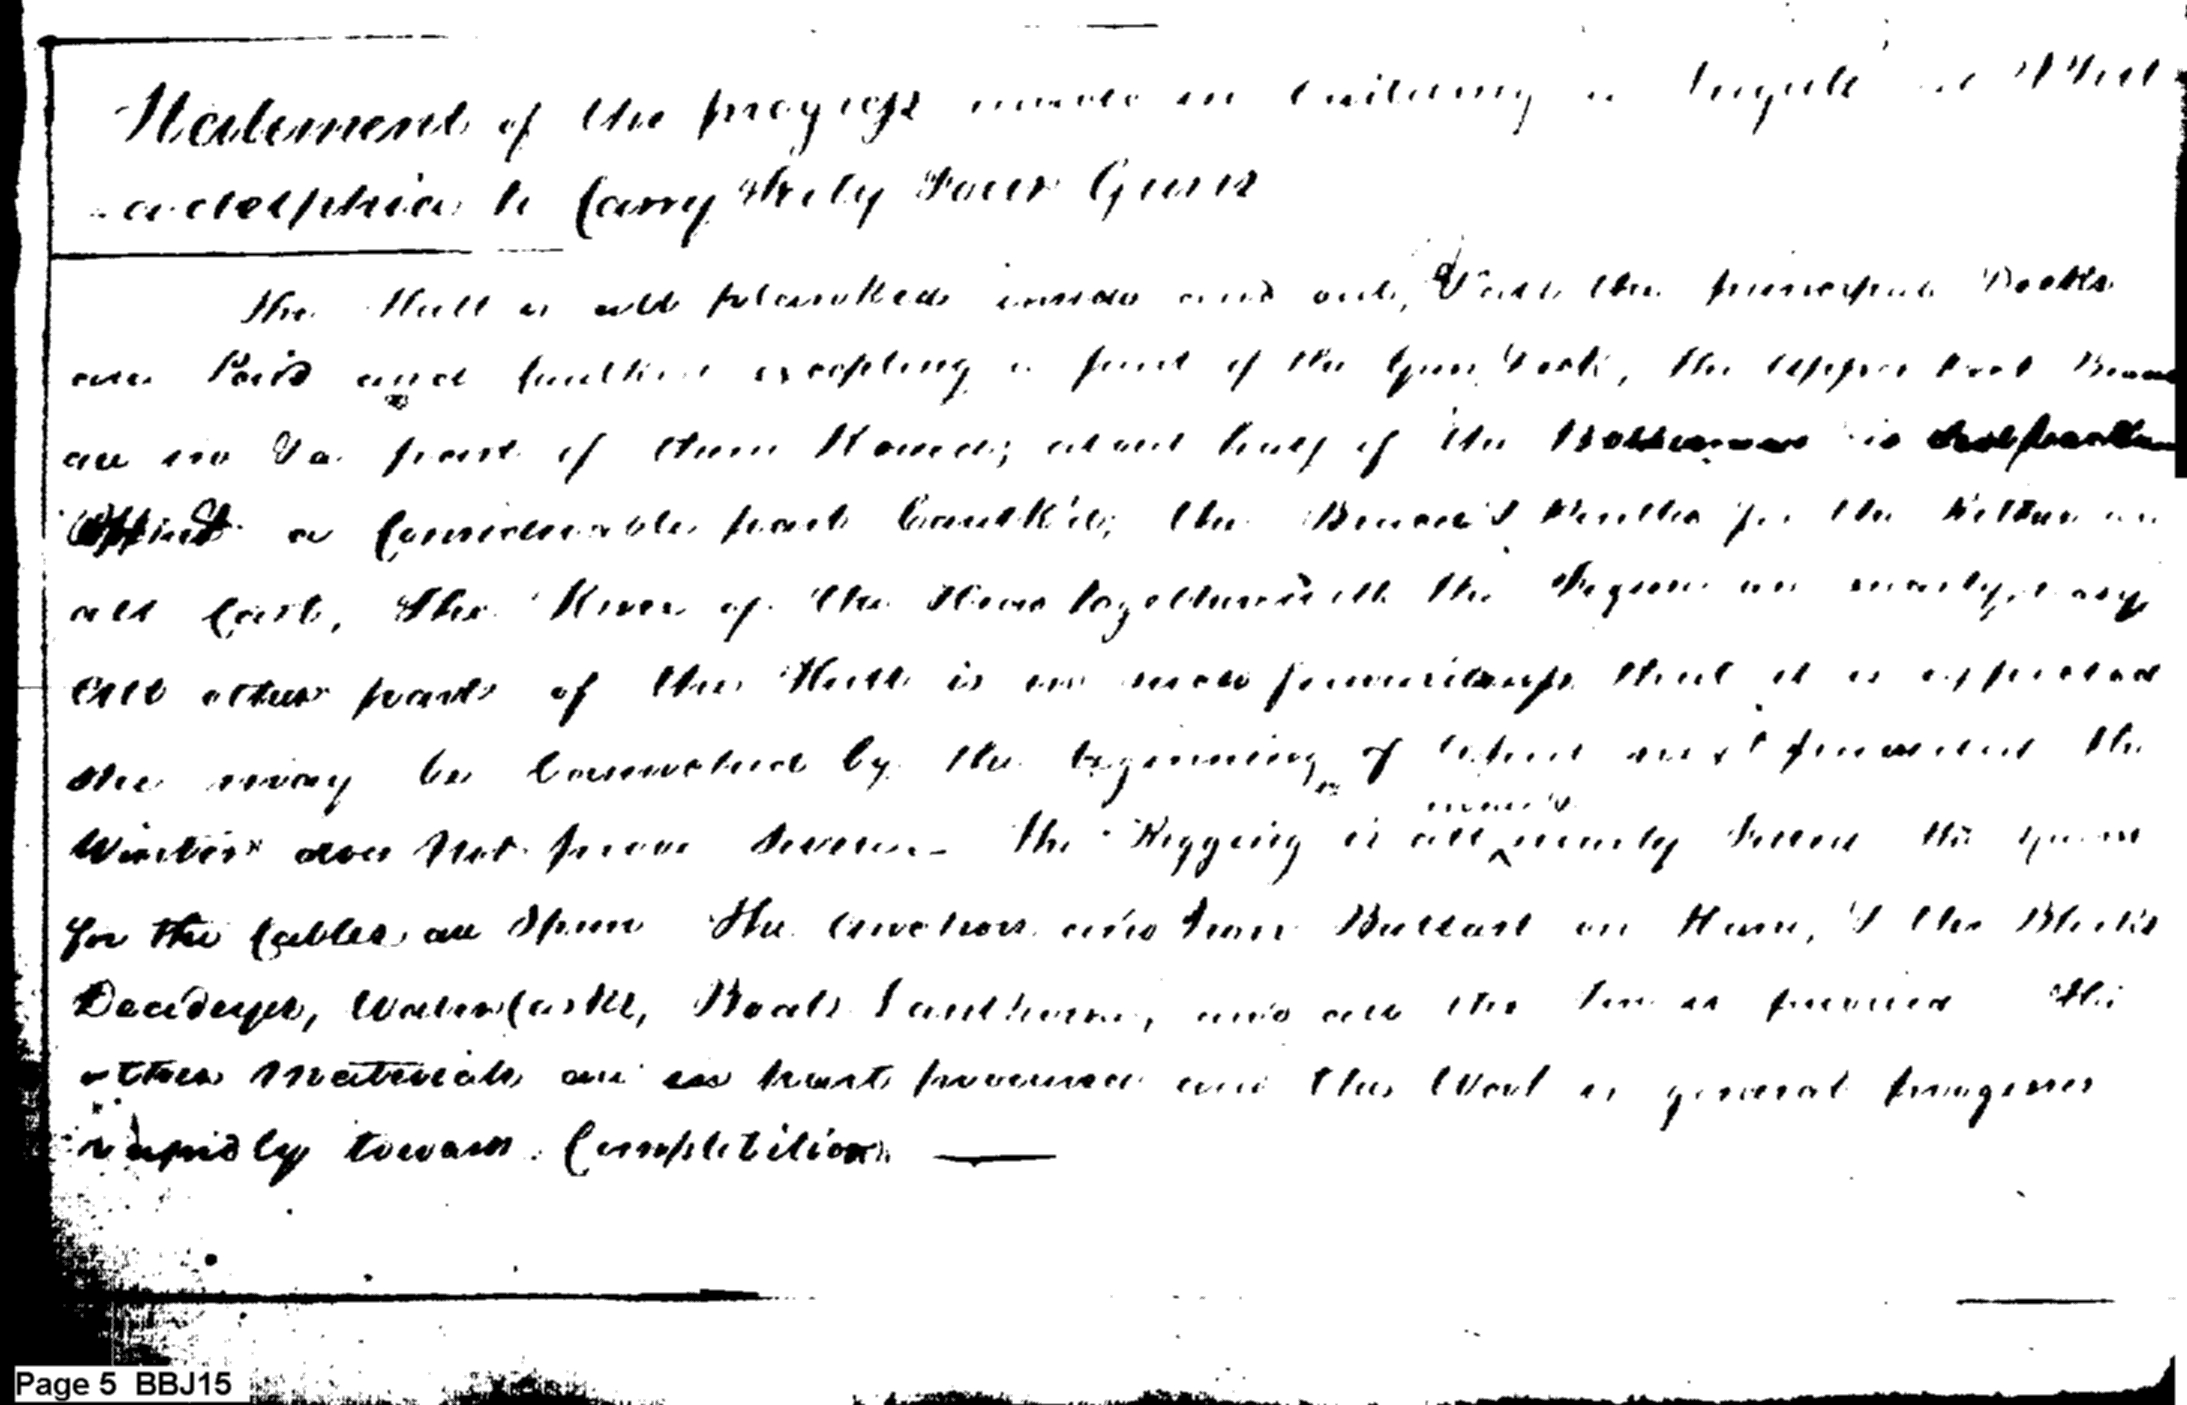 Statement of the progress made in building a Frigate at Phil
-adelphia to Carry Forty Four Guns
The Hull is all planked inside and out, & all the principal Decks
are laid and caulked excepting a part of the Gun Deck, the upper Deck Beams
are in & a part of them Kneed; about half of the Bottom is
a Considerable part Caulk'd; the Braces & Pintles for the Rudder are
all Cast, The Knee of the Head together with the Figure are nearly ready
All other parts of the Hull is in such forwardness that it is expected
she may be launched by the beginning of April next provided the
Winter does not prove severe. The Rigging is all made & nearly fitted the yarns
for the Cables are Spun The Anchors and Iron Ballast on Hand, & the Blocks
Deadeyes, Water Casks, Boats Lanthorns, and all the Tin is procured The
other Materials are in part procured and the Work in general progresses
rapidly towards Completition
Page 5 BBJ15